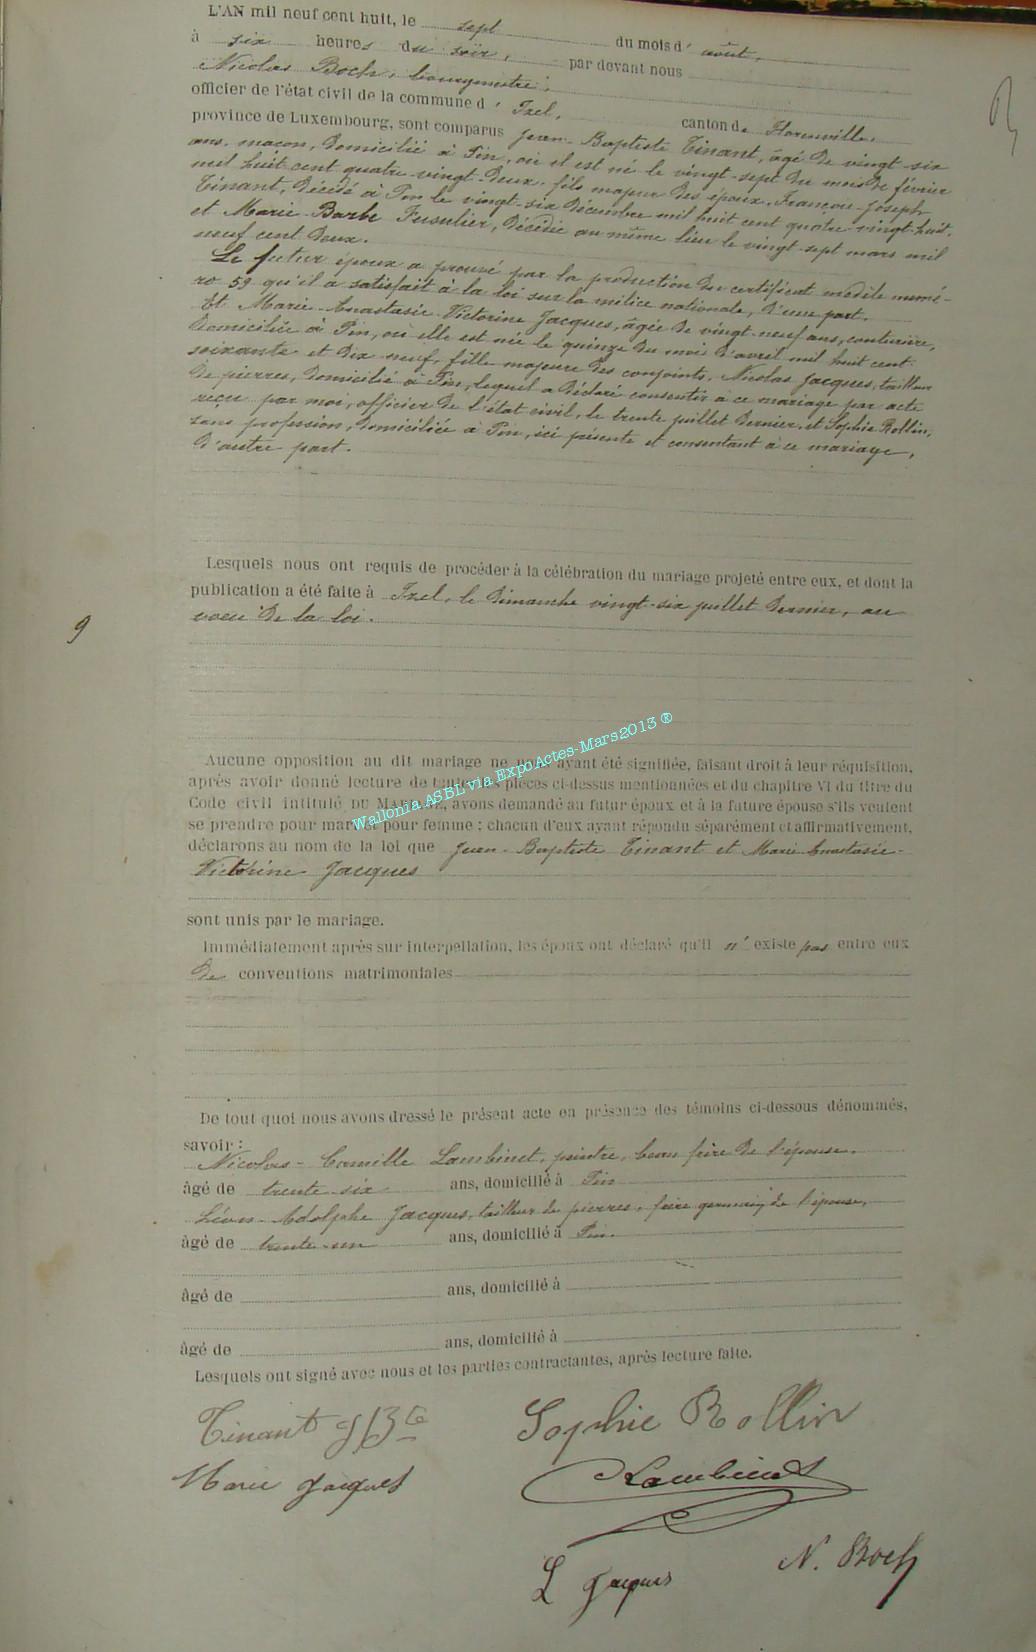 L'AN mil neuf cent huit, le sept du mois d' août,
à six heures du soir, par devant nous
Nicolas Boch, bourgmestre,
officier de l'état civil de la commune d' Izel, canton de Florenville,
province de Luxembourg, sont comparus Jean-Baptiste Tinant, âgé de vingt-six
ans, maçon, domicilié à Pin, où il est né le vingt-sept du mois de février
mil huit cent quatre-vingt-deux, fils majeur des époux, François-Joseph
Tinant, décédé à Pin le vingt-six décembre mil huit cent quatre-vingt-huit,
et Marie-Barbe Fusulier, décédée au même lieu le vingt-sept mars mil
neuf cent deux.
Le futur époux a prouvé par la production du certificat modèle numé-
ro 59 qu'il a satisfait à la loi sur la milice nationale, d'une part.
Et Marie-Anastasie-Victorine Jacques, âgée de vingt-neuf ans, couturière,
domiciliée à Pin, où elle est née le quinze du mois d'avril mil huit cent
soixante et dix-neuf, fille majeure des conjoints, Nicolas Jacques, tailleur
de pierres, domicilié à Pin, lequel a déclaré consentir à ce mariage par acte
reçu par moi, officier de l'état civil, le trente juillet dernier, et Sophie Rollin,
sans profession, domiciliée à Pin, ici présente et consentant à ce mariage,
d'autre part.
Lesquels nous ont requis de procéder à la célébration du mariage projeté entre eux, et dont la
publication a été faite à Izel, le dimanche vingt-six juillet dernier, au
voeu de la loi.
9
Aucune opposition au dit mariage ne ayant été signifiée, faisant droit à leur réquisition,
après avoir donné lecture de toutes les pièces ci-dessus mentionnées et du chapitre VI du titre du
Code civil intitulé DU MARIAGE, avons demandé au futur époux et à la future épouse s'ils veulent
se prendre pour mari et pour femme : chacun d'eux ayant répondu séparément et affirmativement,
déclarons au nom de la loi que Jean-Baptiste Tinant et Marie-Anastasie-
Victorine Jacques
Wallonia ASBL via ExpoActes-Mars2013 ®
sont unis par le mariage.
Immédiatement après sur interpellation, les époux ont déclaré qu'il n' existe pas entre eux
de conventions matrimoniales
De tout quoi nous avons dressé le présent acte en présence des témoins ci-dessous dénommés,
savoir :
Nicolas-Camille Lambinet, peintre, beau frère de l'épouse,
âgé de trente-six ans, domicilié à Pin
Léon-Adolphe Jacques, tailleur de pierres, frère germain de l'épouse,
âgé de trente-un ans, domicilié à Pin.
âgé de ans, domicilié à
âgé de ans, domicilié à
Lesquels ont signé avec nous et les parties contractantes, après lecture faite.
Tinant J Bte
Sophie Rollin
Marie Jacques
C Lambinet
L Jacques
N. Boch